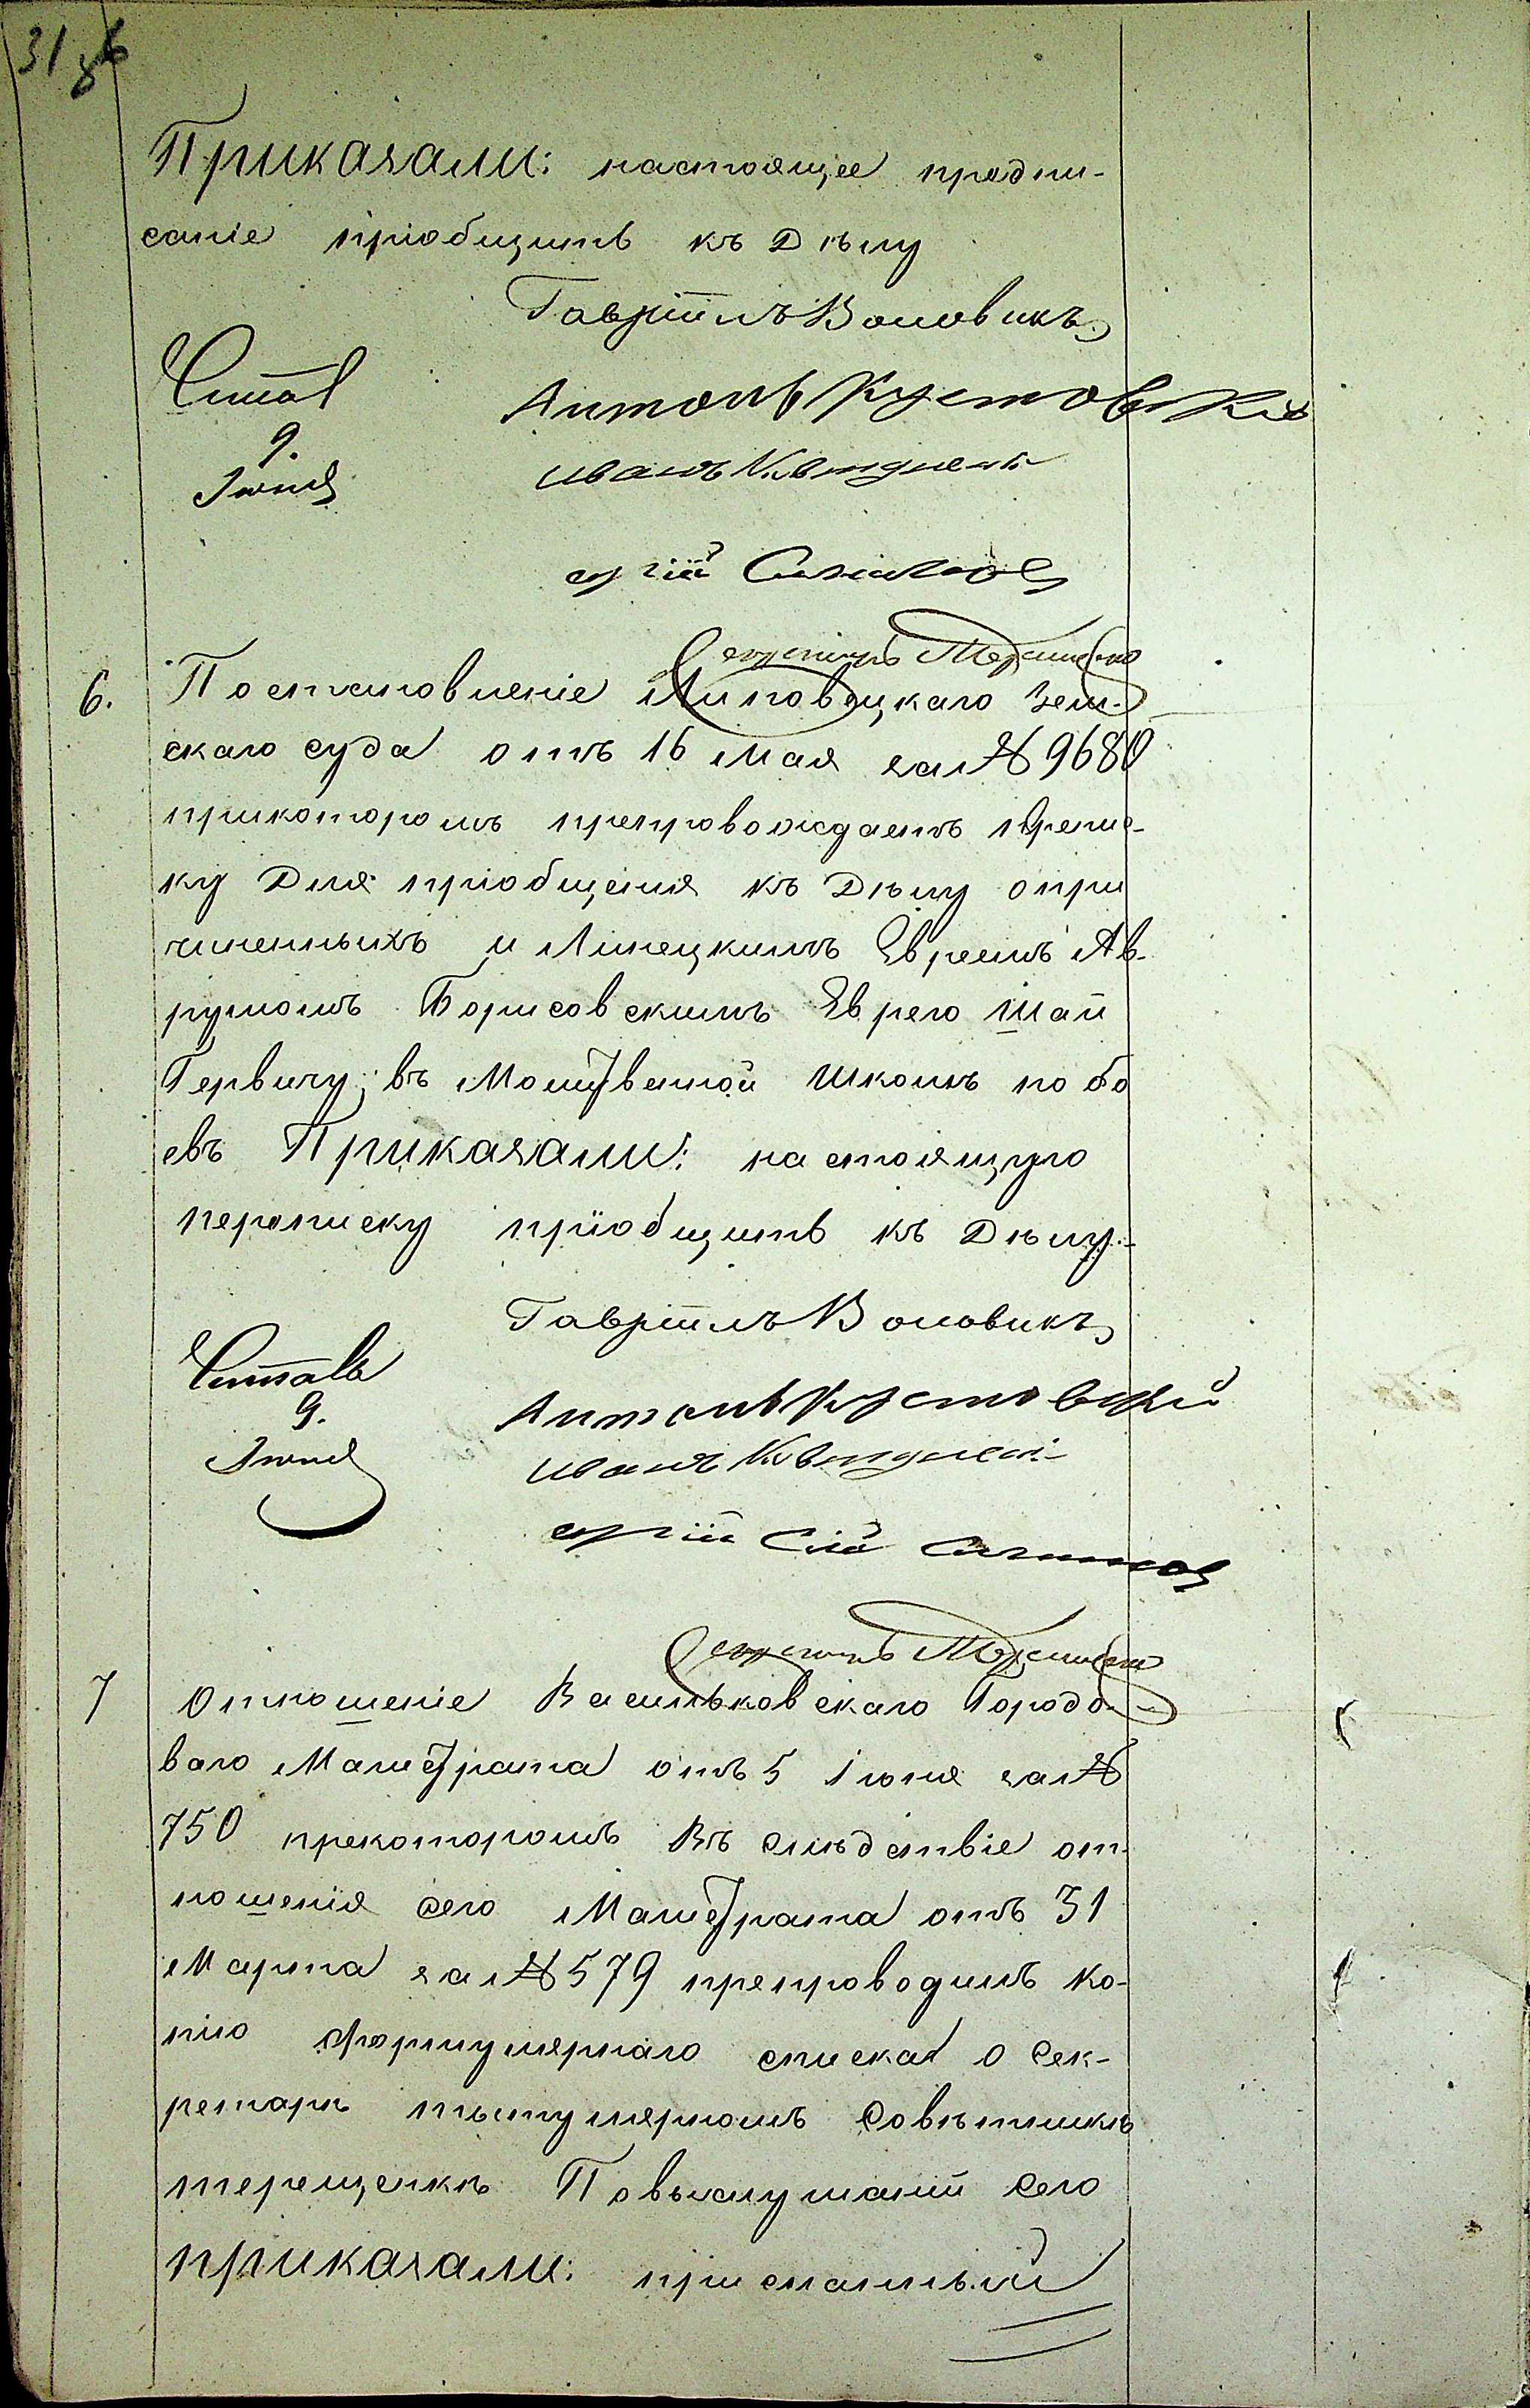 31 об
Приказали: настоящее предпи-
саніе пріобщить къ Дѣлу
Гавріилъ Воловикъ
Читалъ
9.
Іюня
Антонъ Кустовскій
Иванъ
Секретарь Терещенко
6. Постановленіе Липовецкаго Зем-
скаго суда отъ 16 Мая за № 9680
прикоторомъ препровождаетъ перепис-
ку Для пріобщенія къ Дѣлу опри
чиненныхъ и Линецкимъ Евреемъ Ав-
румомъ Борисовскимъ Еврею Шаи
Гервичу; въ Молитвенной Школѣ побо
евъ Приказали: настоящую
переписку пріобщить къ Дѣлу.
Гавріилъ Воловикъ
Читалъ
9.
Іюня
Антонъ Кустовскій
Иванъ
Секретарь Терещенко
7 Отношеніе Васильковскаго Городо-
ваго Магистрата отъ 5 Іюня за №
750 прекоторомъ Въ слѣдствіе от-
ношенія сего Магистрата отъ 31
Марта за № 579 препроводилъ Ко-
пію Формулярнаго списка о Сек-
ретарѣ тытулярномъ Совѣтникѣ
терещенкѣ Повыслушаніи Сего
приказали: присланный